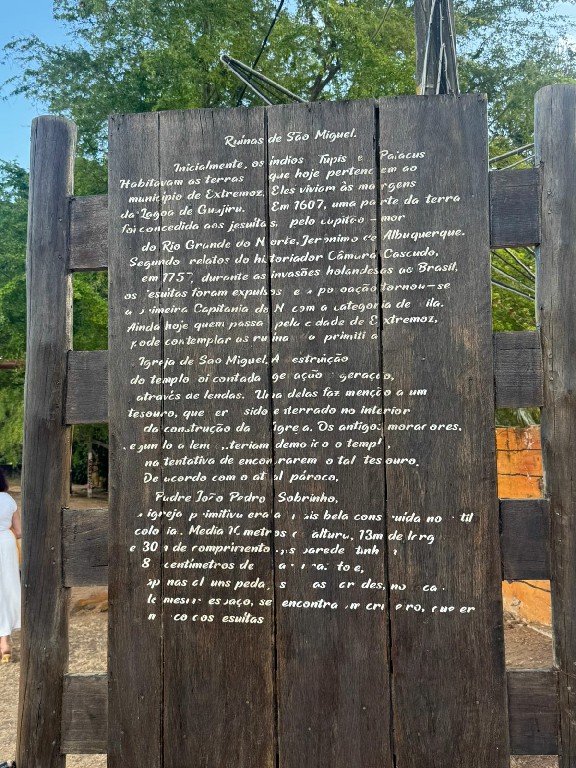 Ruínas de São Miguel.
Inicialmente, os índios Tupis e Paiacus
Habitavam as terras que hoje pertencem ao
município de Extremoz. Eles viviam às margens
da Lagoa de Guajiru. Em 1607, uma parte da terra
foi concedida aos jesuítas, pelo capitão-mor
do Rio Grande do Norte, Jerônimo de Albuquerque.
Segundo relatos do historiador Câmara Cascudo,
em durante as invasões holandesas ao Brasil,
os jesuítas foram expulsos e a povoação tornou-se
a primeira Capitania do RN com a categoria de vila.
Ainda hoje quem passa pela cidade de Extremoz,
pode contemplar as ruínas da primitiva
Igreja de São Miguel. A destruição
do templo foi contada geração geração,
através de lendas. Uma delas faz menção a um
tesouro, que sido enterrado no interior
da construção da igreja. Os antigos moradores,
segundo a lenda, teriam demolido o templo
na tentativa de encontrarem o tal tesouro.
De acordo com o atual pároco,
Padre João Pedro Sobrinho,
a igreja primitiva era a mais bela construída no
colônia. Media metros de altura, 13m de larg
e 30m de comprimento, parede tinh
8 centímetros de
apenas alguns peda
mesmo espaço, se encontra um
jesuítas